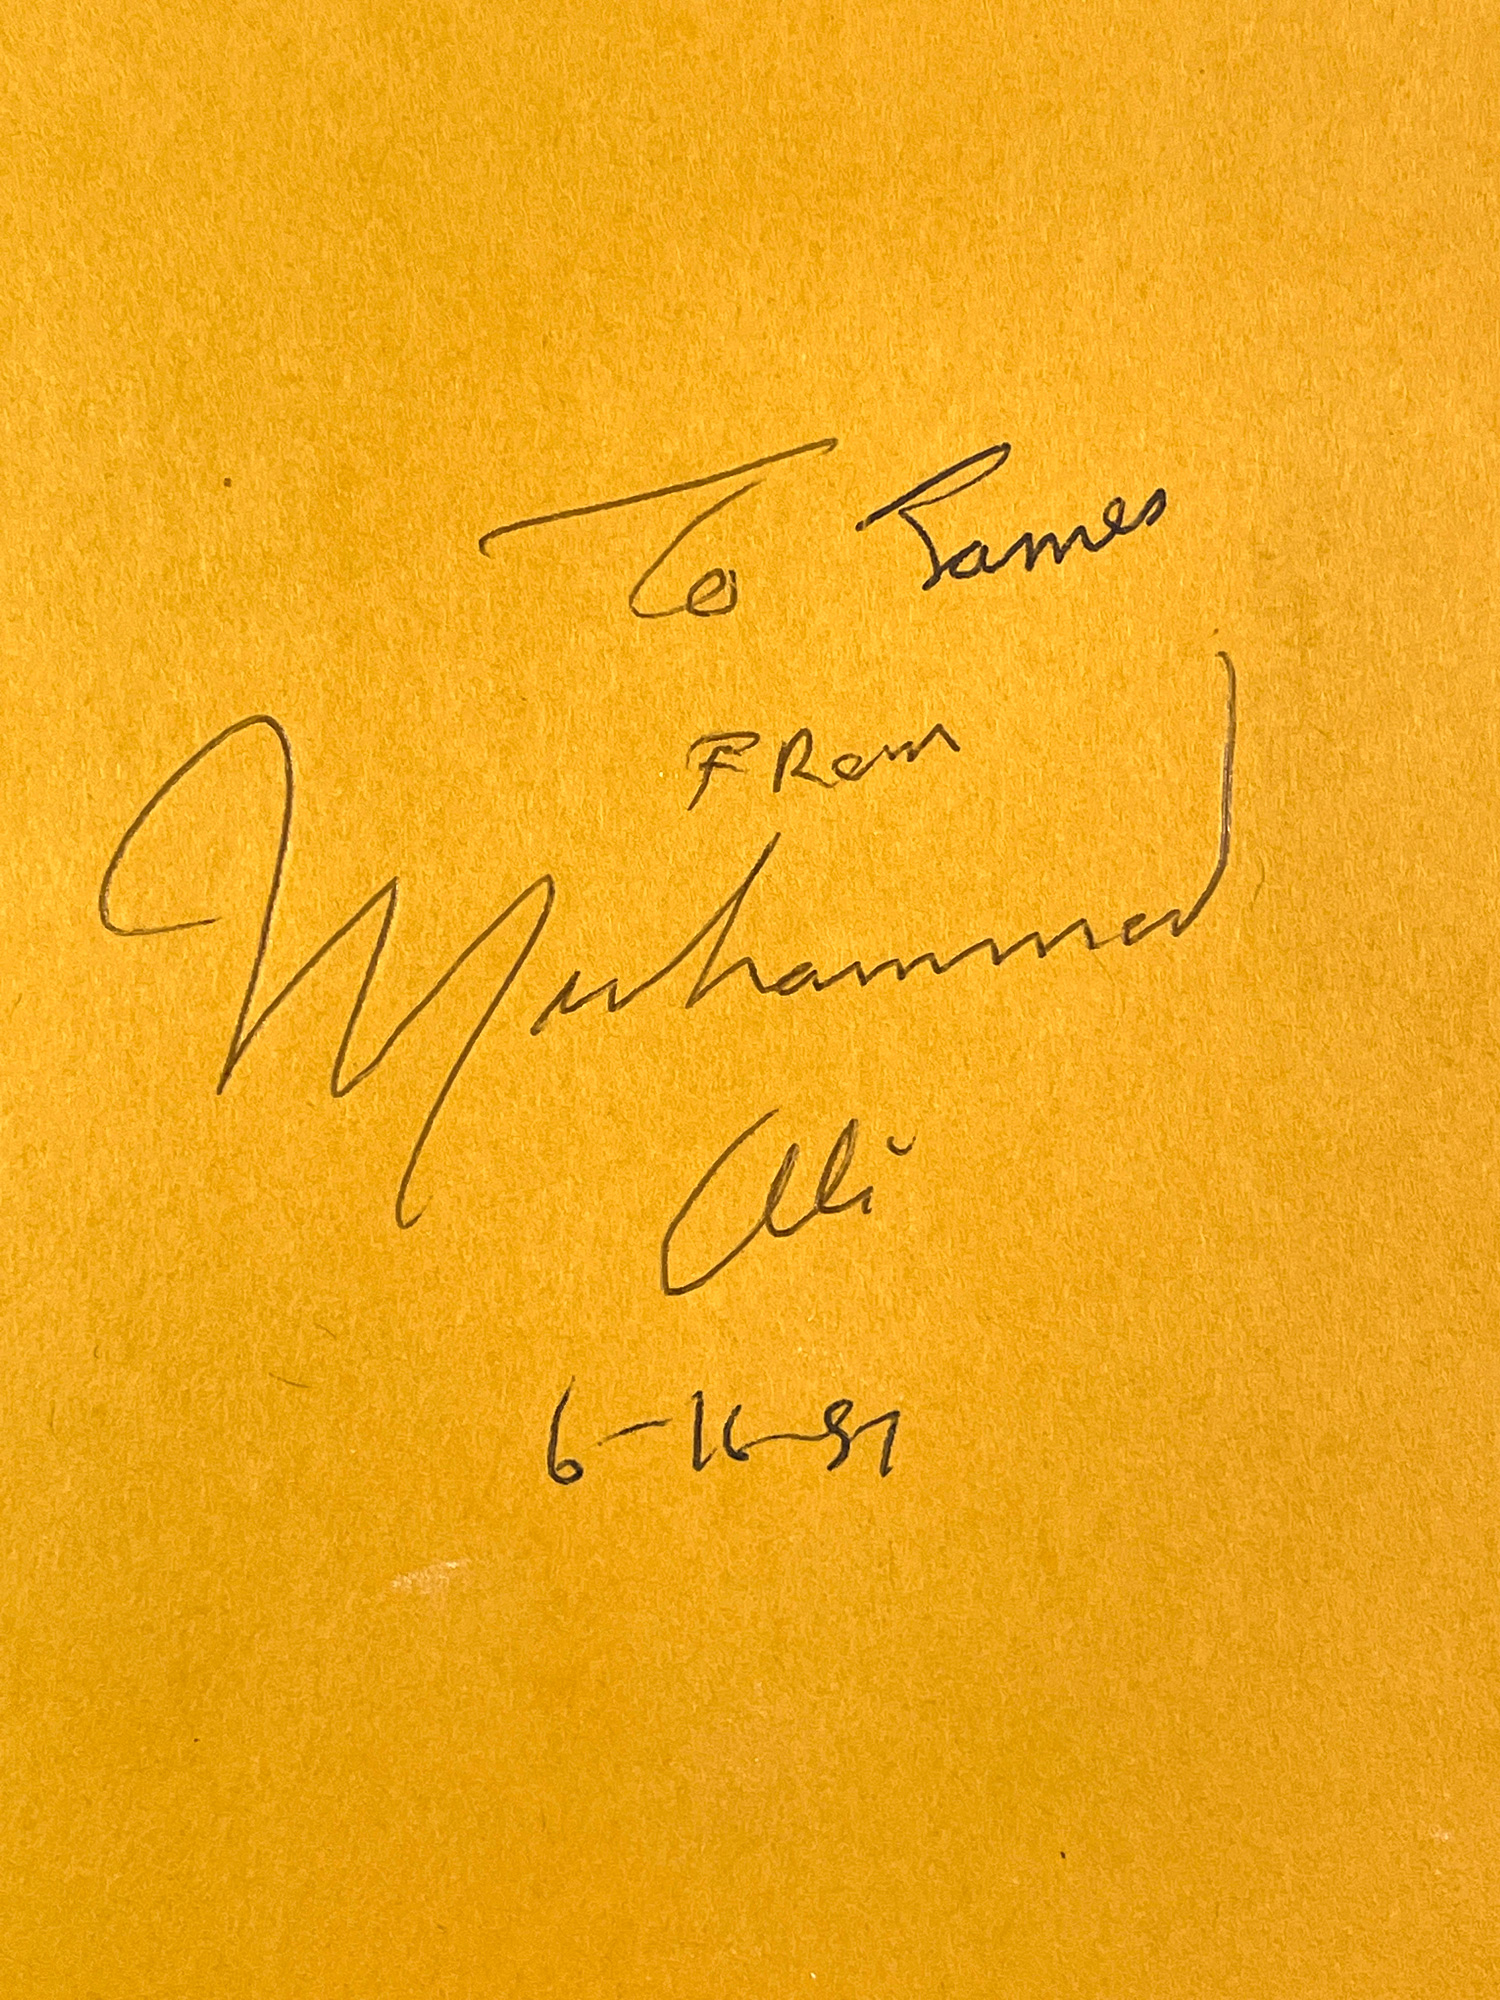 To James
FRom
Muhammad
Ali
6-16-91